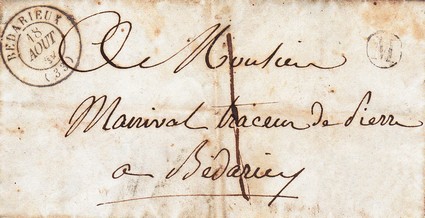 BEDARIEUX
18
AOUT
(33)
A Monsieur
Mairival traceur de pierre
a Bédarieux
1